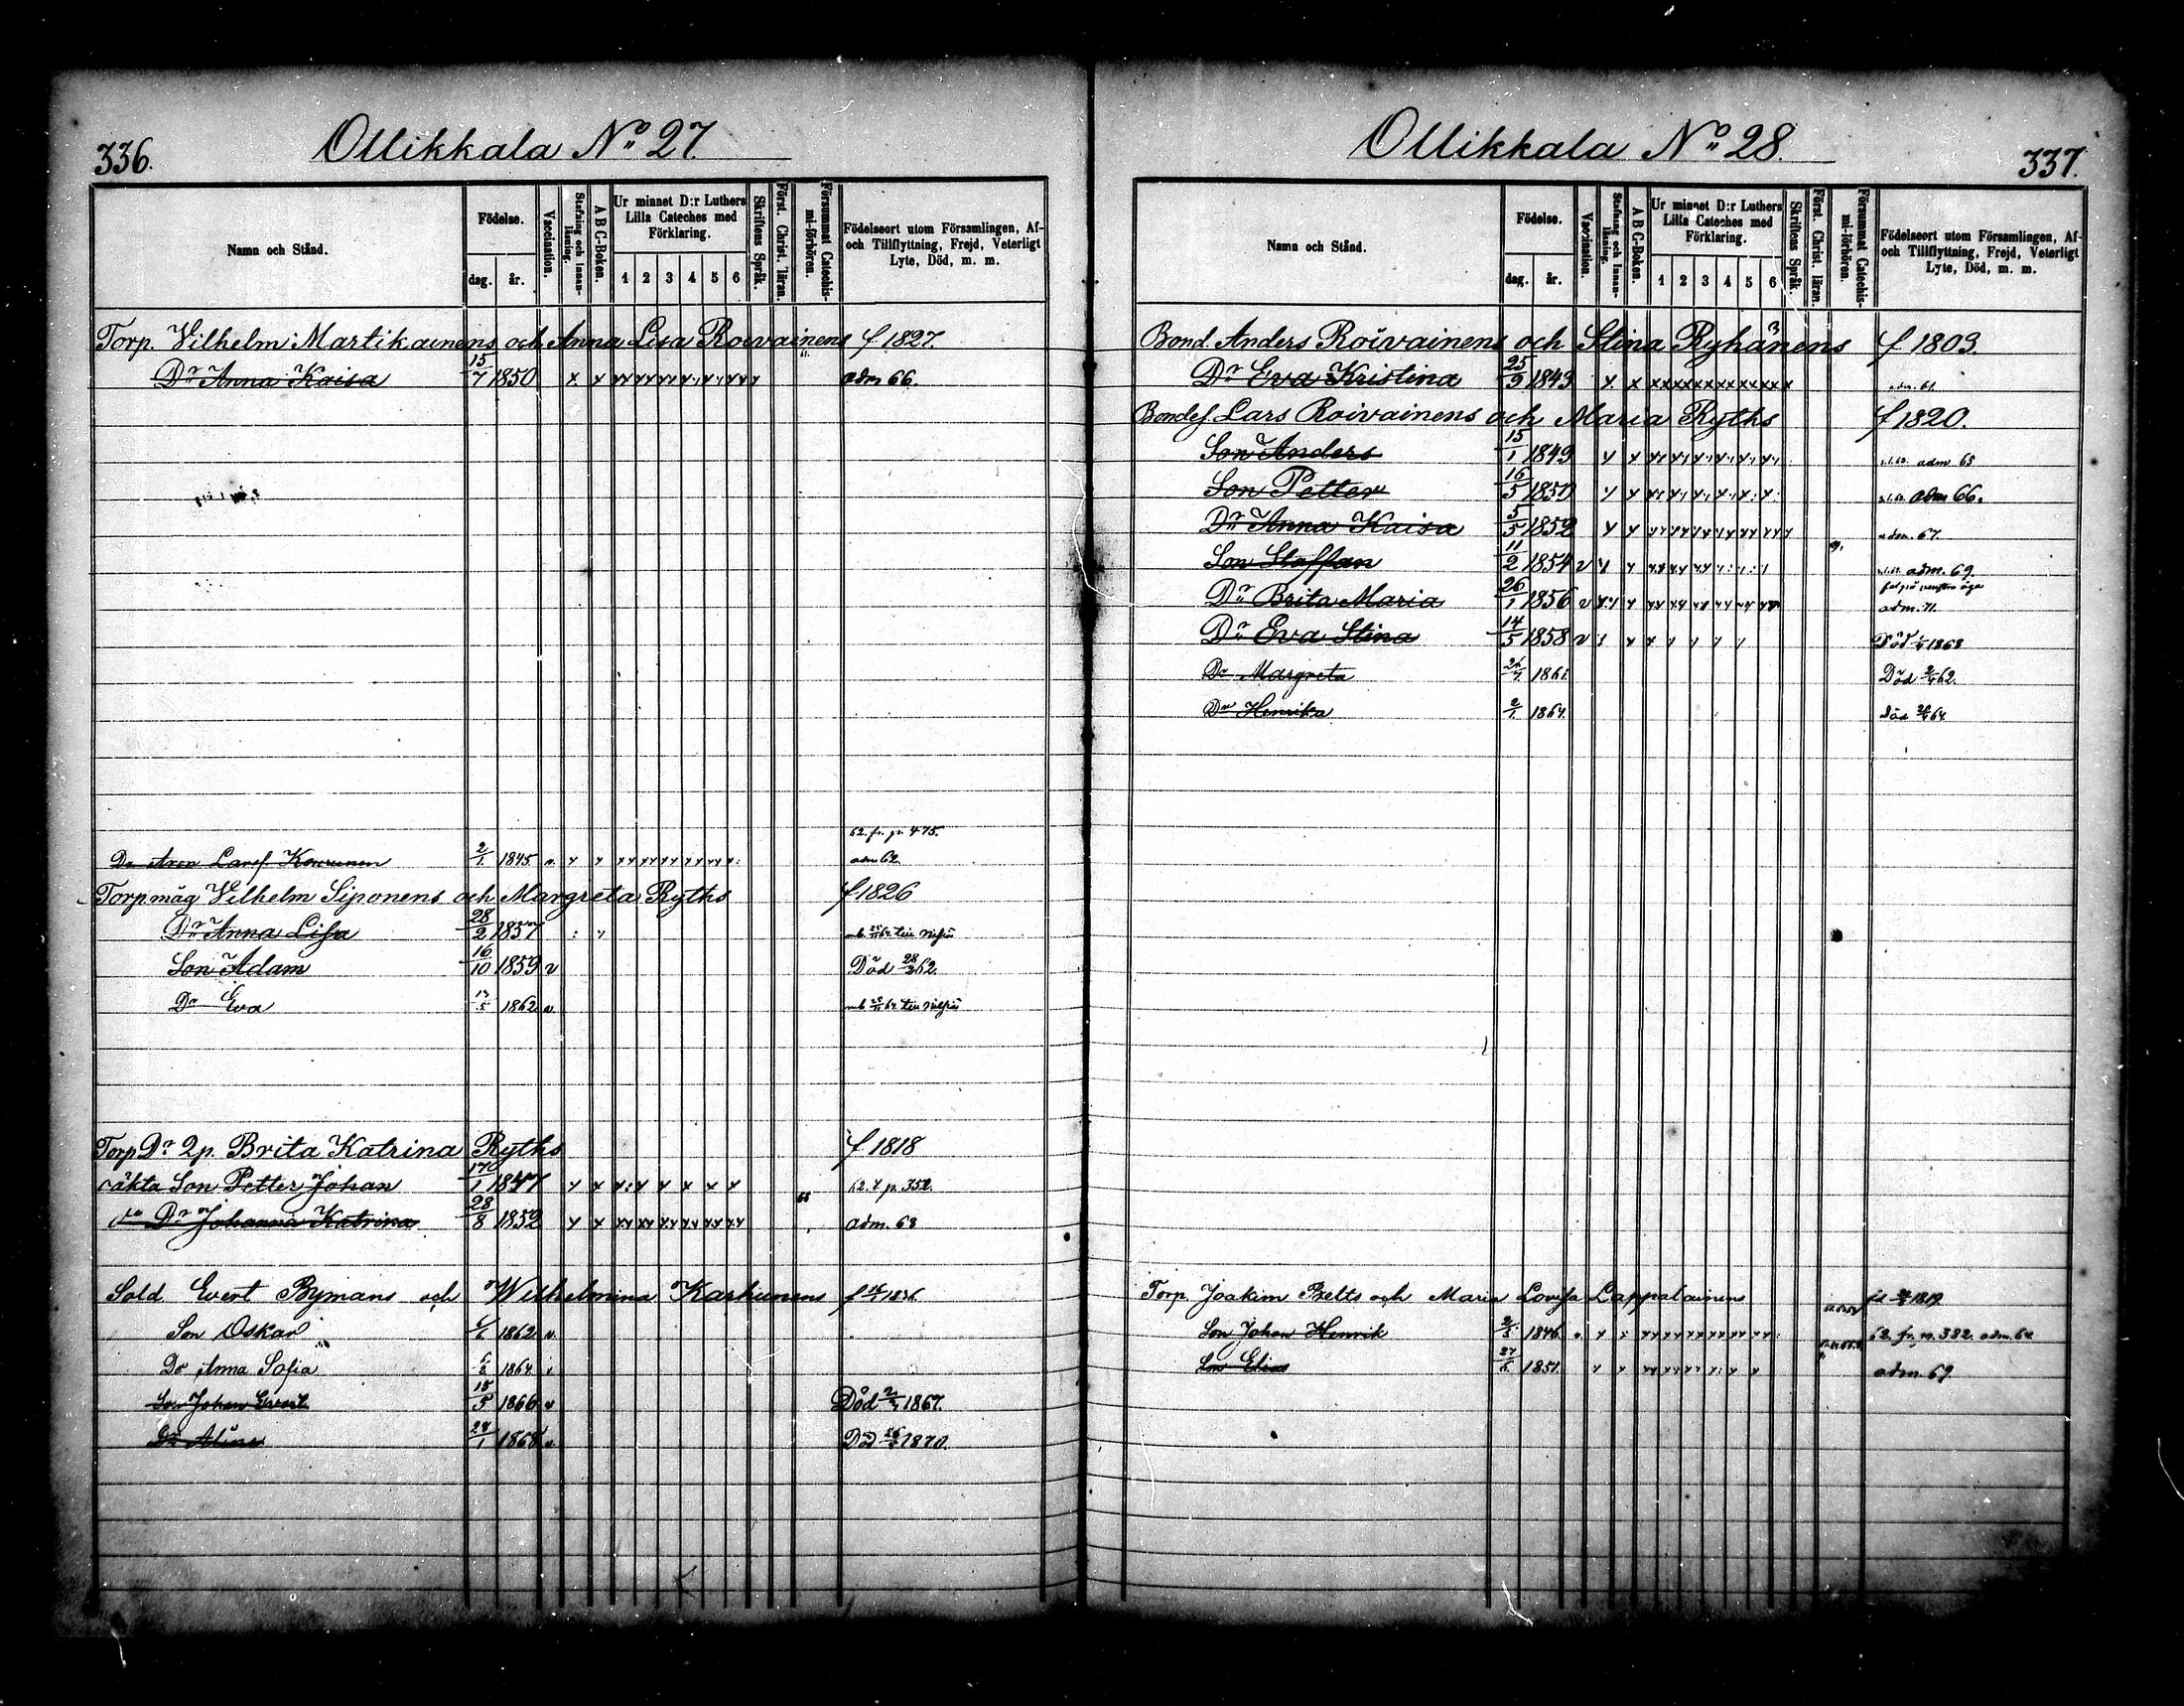 336.
Ollikkala No 27.
Namn och Stånd.
Födelse.
dag. år.
Vaccination.
Stafning och Innanläsning.
A B C-Boken.
Ur minnet D:r Luthers Lilla Cateches med Förklaring.
1 2 3 4 5 6
Skriftens Språk.
Först. Christ. läran.
Försummat Catechismi-förhören.
Födelseort utom Församlingen, Af- och Tillflyttning, Frejd, Veterligt Lyte, Död, m. m.
Torp. Vilhelm Martikainens och Anna Lisa Roivainens f 1827.
Dr Anna Kaisa 15/7 1850 x x xx xx xx x, x, xx x adm 66.
62. fr. p. 475.
Dr 2/1. 1845. v. x x xx xx xx xx xx x. adm 62.
Torpmåg Vilhelm Siponens och Margreta Ryths f 1826
Dr Anna Lisa 28/2 1857
Son Adam 16/10 1859 v Död 28/2 62.
Dr Eva 1862 v.
Torp Dr 2p. Brita Katrina Ryths f 1818
oäkta Son Petter Johan 1847 x x x:x x x x x 62. p. 352.
Dr Johanna Katrina 28/8 1852 x x xx xx xx xx xx xx adm. 68
Sold Evert Rymans och Wilhelmina Karhunens
Son Oskar 1862 v.
Dr Anna Sofia 1864
Son Johan Evert 15/5 1866 v Död 1867.
Dr Alina 1868 v. Död 1870.
337.
Ollikkala No 28.
Namn och Stånd.
Födelse.
dag. år.
Vaccination.
Stafning och Innanläsning.
A B C-Boken.
Ur minnet D:r Luthers Lilla Cateches med Förklaring.
1 2 3 4 5 6
Skriftens Språk.
Först. Christ. läran.
Försummat Catechismi-förhören.
Födelseort utom Församlingen, Af- och Tillflyttning, Frejd, Veterligt Lyte, Död, m. m.
Bond. Anders Roivainens och Stina Ryhänens f 1803.
Dr Eva Kristina 25/9 1843 x x xx xx xx xx xx xx x adm. 61.
Bondes. Lars Roivainens och Maria Ryths f 1820.
Son Anders 15/1 1849 adm 65
Son Petter 16/5 1850 adm 66.
Dr Anna Kaisa 5/5 1852 adm. 67.
Son Staffan 11/2 1854 v adm. 69.
Dr Brita Maria 26/1 1856 v adm. 71.
Dr Eva Stina 14/5 1858 v Död 1868
Dr Margreta 1861. Död 62.
Dr Henrika 2/1. 1864. Död 64.
Torp. Joakim Pelts och Maria Lovisa Lappalainens 1819.
Son Johan Henrik 1846. 62. fr. p. 382. adm. 64
Son Elias 1851. adm. 69.